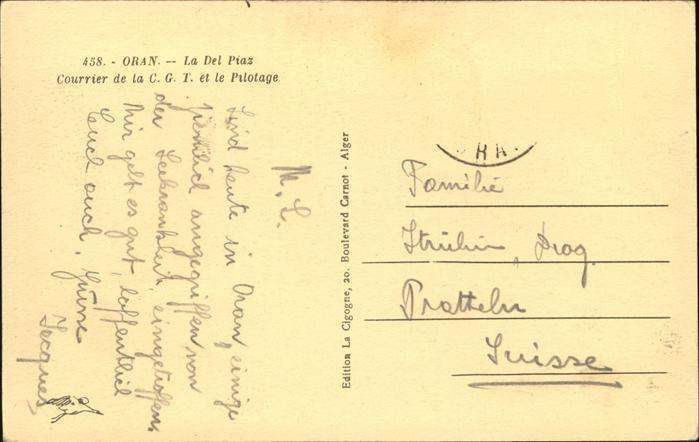 458. - ORAN. -- La Del Piaz
Courrier de la C. G. T. et le Pilotage
M. L.
Sind heute in Oran, einige
ziemlich angegriffen von
der Seekrankheit, eingetroffen,
Mir geht es gut, hoffentlich
Euch auch. Grüsse
Jacques
Edition La Cigogne, 20. Boulevard Carnot - Alger
RA
Familie
Strübin, Drog.
Pratteln
Suisse